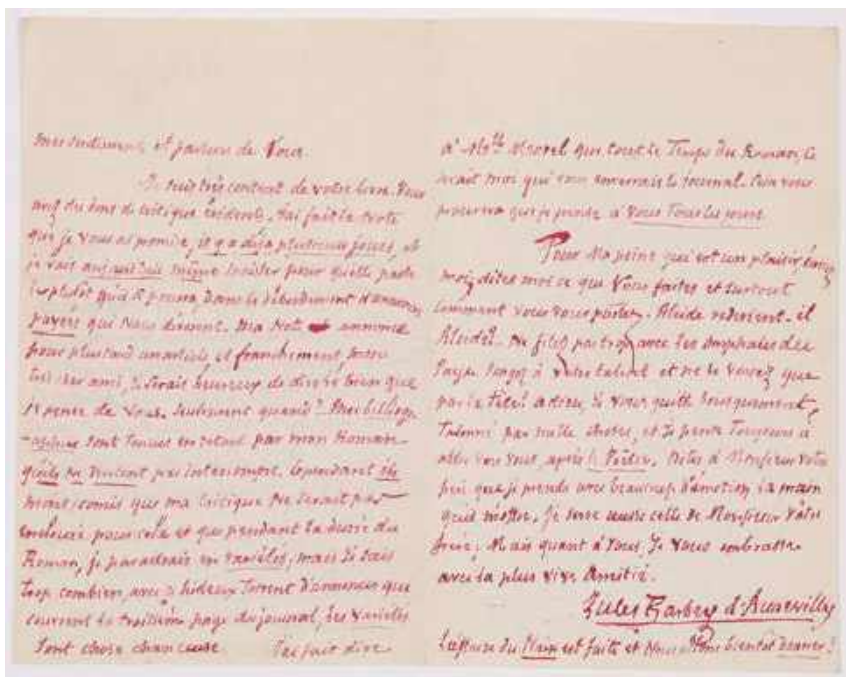 mes sentiments et parlons de Vous.
Je suis très content de votre livre. Vous
avez du sens de critique évidente. J'ai fait la Note
que je vous ai promise, il y a déjà plusieurs jours, et
je vais aujourd'hui même insister pour qu'elle passe
le plutôt qu'il se pourra, dans le débordement d'annonces
payées qui Nous dévorent. Ma Note annonce
pour plus tard un article et franchement, mon
très cher ami, je serais heureux de dire le bien que
je pense de Vous. Seulement quand? Mes
sont tenues en retard par mon Roman
qu'ils ne veulent pas interrompre. Cependant ils
m'ont promis que ma Critique Ne serait pas
pour cela et que pendant la durée du
Roman, je paraîtrais en Variétés; mais je sais
trop combien, avec le hideux torrent d'annonces qui
couvrent la troisième page du journal, les Variétés
sont chose chanceuse. J'ai fait dire
à Mlle que tout le Temps du Roman, ce
serait moi qui vous enverrais le journal. Cela vous
prouvera que je pense à Vous Tous les jours.
Pour Ma peine qui est un plaisir,
moi, dites moi ce que Vous faites et surtout
comment vous vous portez. revient-il
Ne filez pas trop avec les du
Pays. Songez à votre talent et ne le versez que
par la tête! adieu, Je vous quitte brusquement,
Talonné par mille choses, et Je pense Toujours à
aller vers Vous, après le. Dites à Monsieur Votre
père que je prends avec beaucoup d'émotion la main
qu'il m'offre. Je serre aussi celle de Monsieur Votre
frère; Mais quant à Vous, Je Vous embrasse
avec la plus vive Amitié.
Jules Barbey d'Aurevilly
L'affaire du est faite et Nous bientôt!